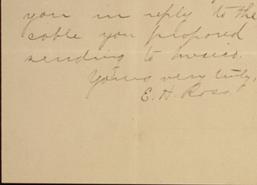 you in reply to the
cable you proposed
sending to Mexico.
Yours very truly,
E. H. Ross